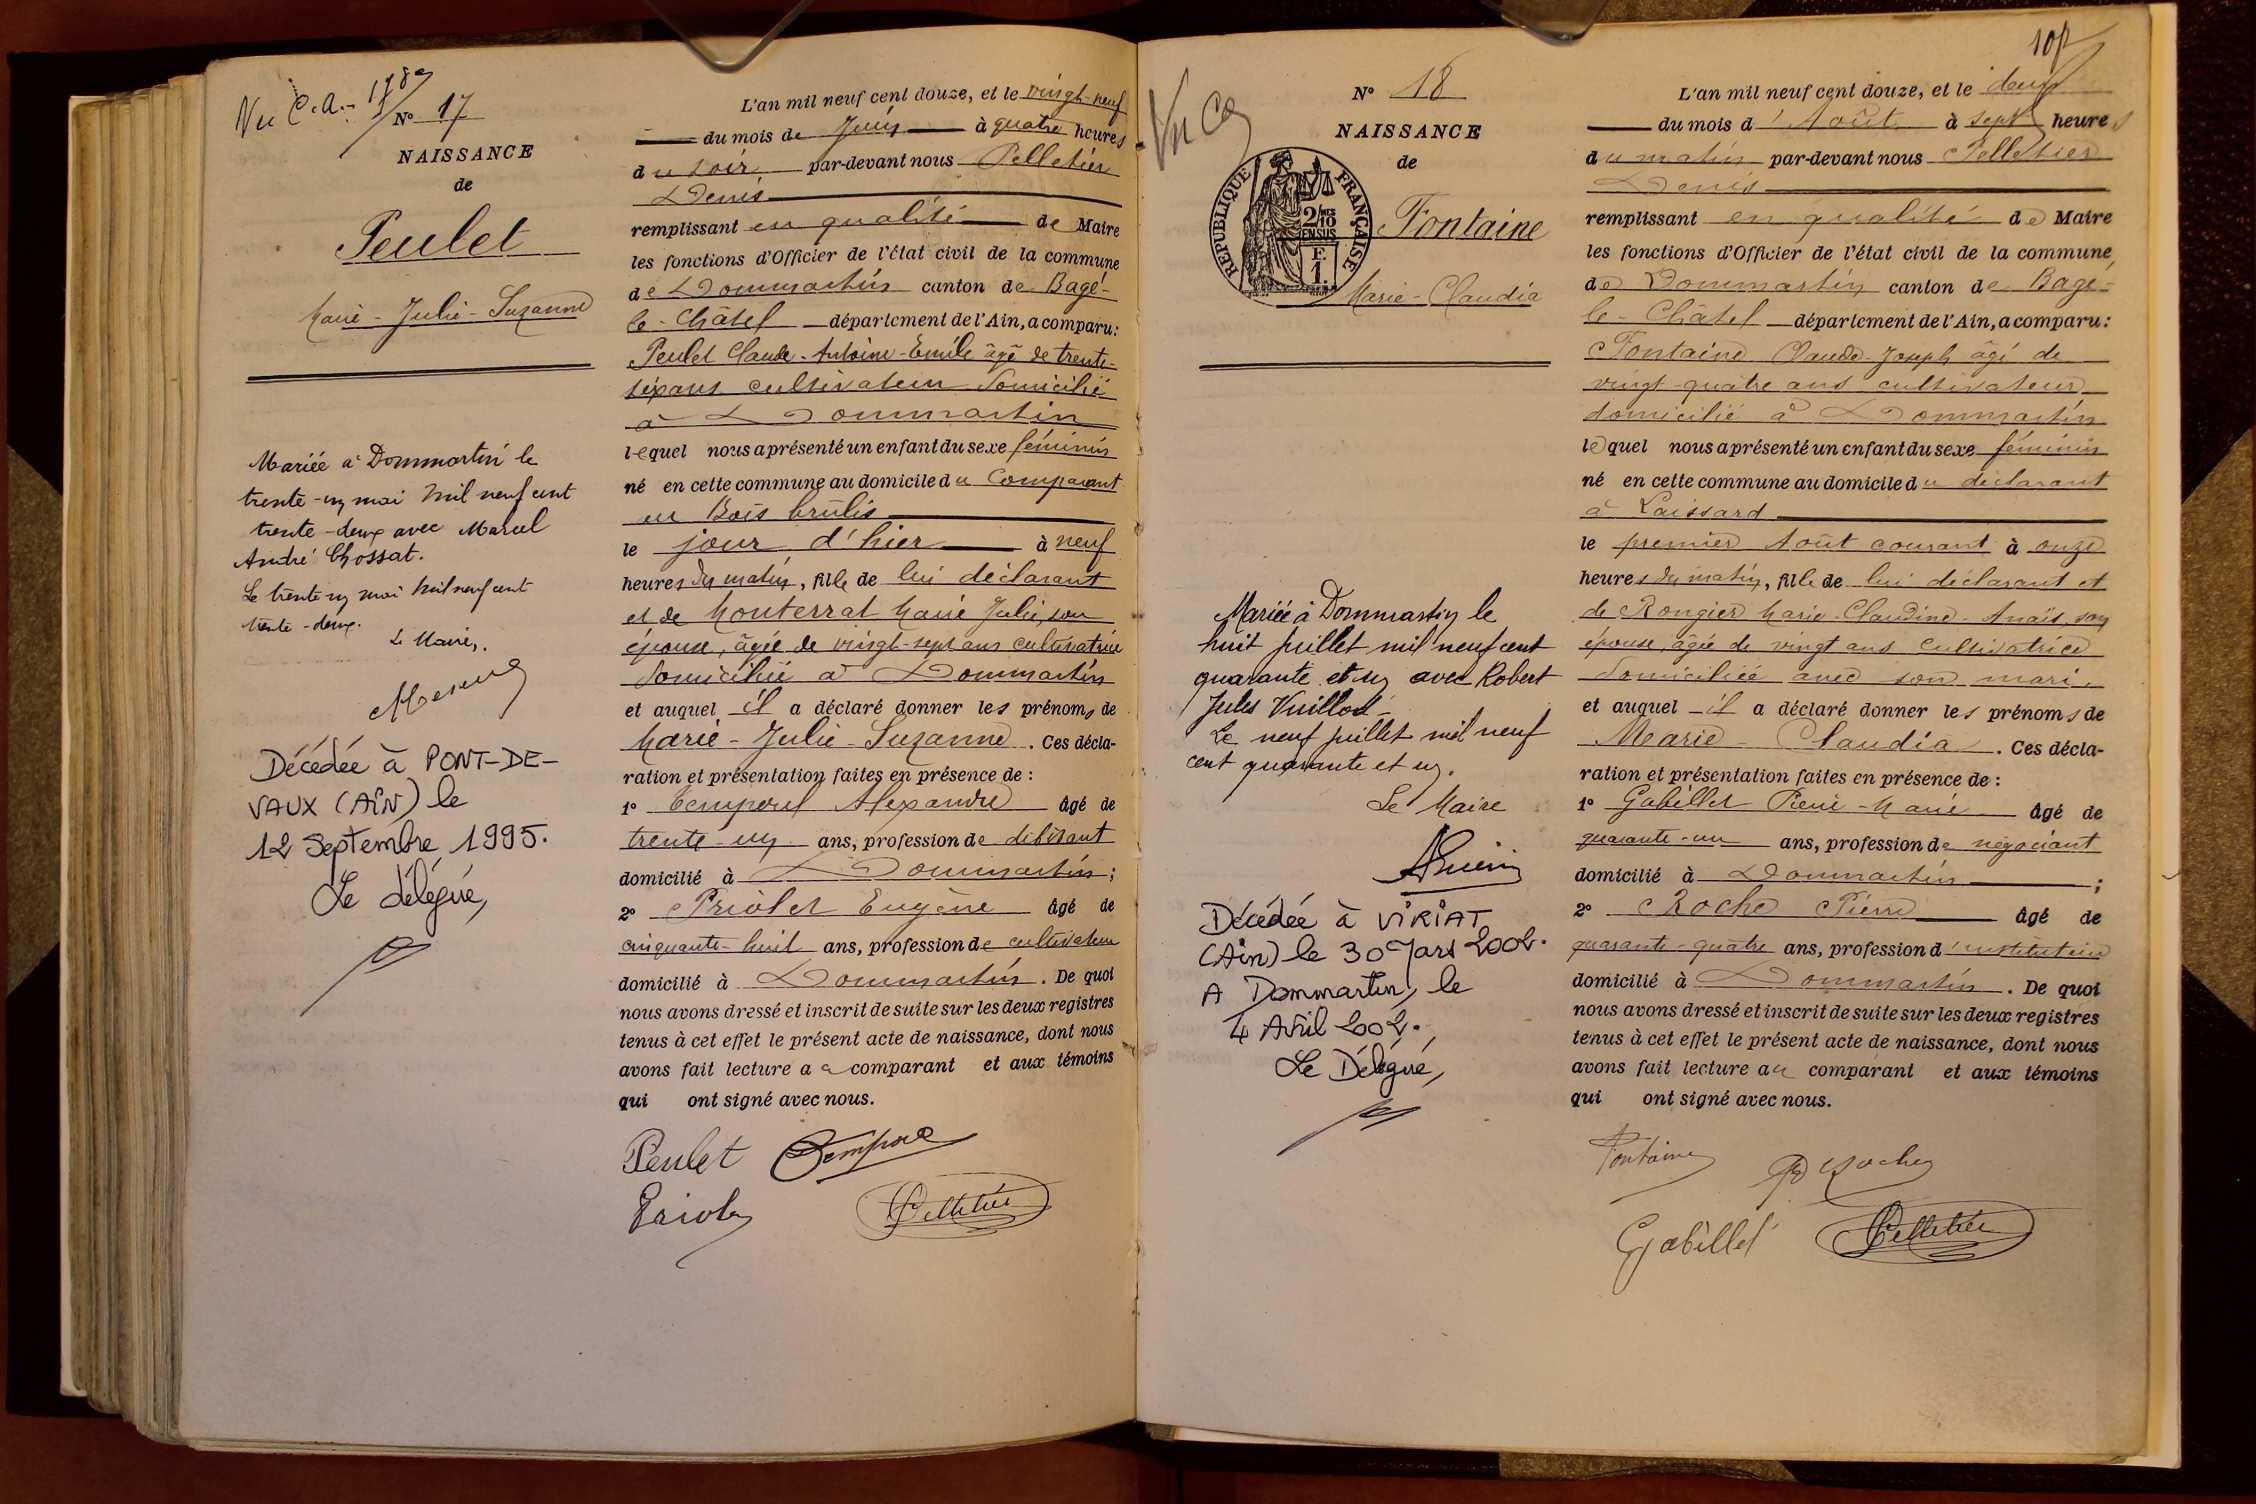 Vu C.A.
N° 17
NAISSANCE
de
Peulet
Marie - Julie - Suzanne
Mariée à Dommartin le
trente-un mai mil neuf cent
trente-deux avec Marcel
André Chossat.
Le trente un mai mil neuf cent
trente-deux.
Le Maire,
Décédée à PONT-DE-
VAUX (AIN) le
12 Septembre 1995.
Le délégué,
L'an mil neuf cent douze, et le vingt-neuf
du mois de Juin à quatre heures
du soir par-devant nous Pelletier
Denis
remplissant en qualité de Maire
les fonctions d'Officier de l'état civil de la commune
de Dommartin canton de Bagé-
le-Châtel département de l'Ain, a comparu:
Peulet Claude-Antoine-Emile âgé de trente-
six ans cultivateur domicilié
à Dommartin
lequel nous a présenté un enfant du sexe féminin
né en cette commune au domicile du Comparant
en Bois brûlis
le jour d'hier à neuf
heures du matin, fille de lui déclarant
et de Monterrat Marie Julie, son
épouse, âgée de vingt-sept ans cultivatrice
domiciliée à Dommartin
et auquel il a déclaré donner les prénoms de
Marie-Julie-Suzanne. Ces décla-
ration et présentation faites en présence de :
1° Temporel Alexandre âgé de
trente-un ans, profession de débitant
domicilié à Dommartin ;
2° Priolet Eugène âgé de
cinquante-huit ans, profession de cultivateur
domicilié à Dommartin. De quoi
nous avons dressé et inscrit de suite sur les deux registres
tenus à cet effet le présent acte de naissance, dont nous
avons fait lecture au comparant et aux témoins
qui ont signé avec nous.
Peulet
Pelletier
Vu
N° 18
NAISSANCE
de
RÉPUBLIQUE FRANÇAISE
2/10 MES
EN SUS
F.
1.
Fontaine
Marie-Claudia
Mariée à Dommartin le
huit juillet mil neuf cent
quarante et un avec Robert
Jules Vuillod
Le neuf juillet mil neuf
cent quarante et un.
Le Maire
Décédée à VIRIAT
(Ain) le 30 Mars 2002.
A Dommartin, le
4 Avril 2002.
Le Délégué,
L'an mil neuf cent douze, et le deux
du mois d'Août à sept heures
du matin par-devant nous Pelletier
Denis
remplissant en qualité de Maire
les fonctions d'Officier de l'état civil de la commune
de Dommartin canton de Bagé-
le-Châtel département de l'Ain, a comparu:
Fontaine Claude-Joseph âgé de
vingt-quatre ans cultivateur
domicilié à Dommartin
lequel nous a présenté un enfant du sexe féminin
né en cette commune au domicile du déclarant
à Laissard
le premier Août courant à onze
heures du matin, fille de lui déclarant et
de Rongier Marie-Claudine-Anaïs, son
épouse, âgée de vingt ans cultivatrice
domiciliée avec son mari.
et auquel il a déclaré donner les prénoms de
Marie-Claudia. Ces décla-
ration et présentation faites en présence de :
1° Gabillet Pierre-Marie âgé de
quarante-un ans, profession de négociant
domicilié à Dommartin ;
2° Roche Pierre âgé de
quarante-quatre ans, profession d'instituteur
domicilié à Dommartin. De quoi
nous avons dressé et inscrit de suite sur les deux registres
tenus à cet effet le présent acte de naissance, dont nous
avons fait lecture au comparant et aux témoins
qui ont signé avec nous.
Fontaine
P Roche
Gabillet
Pelletier